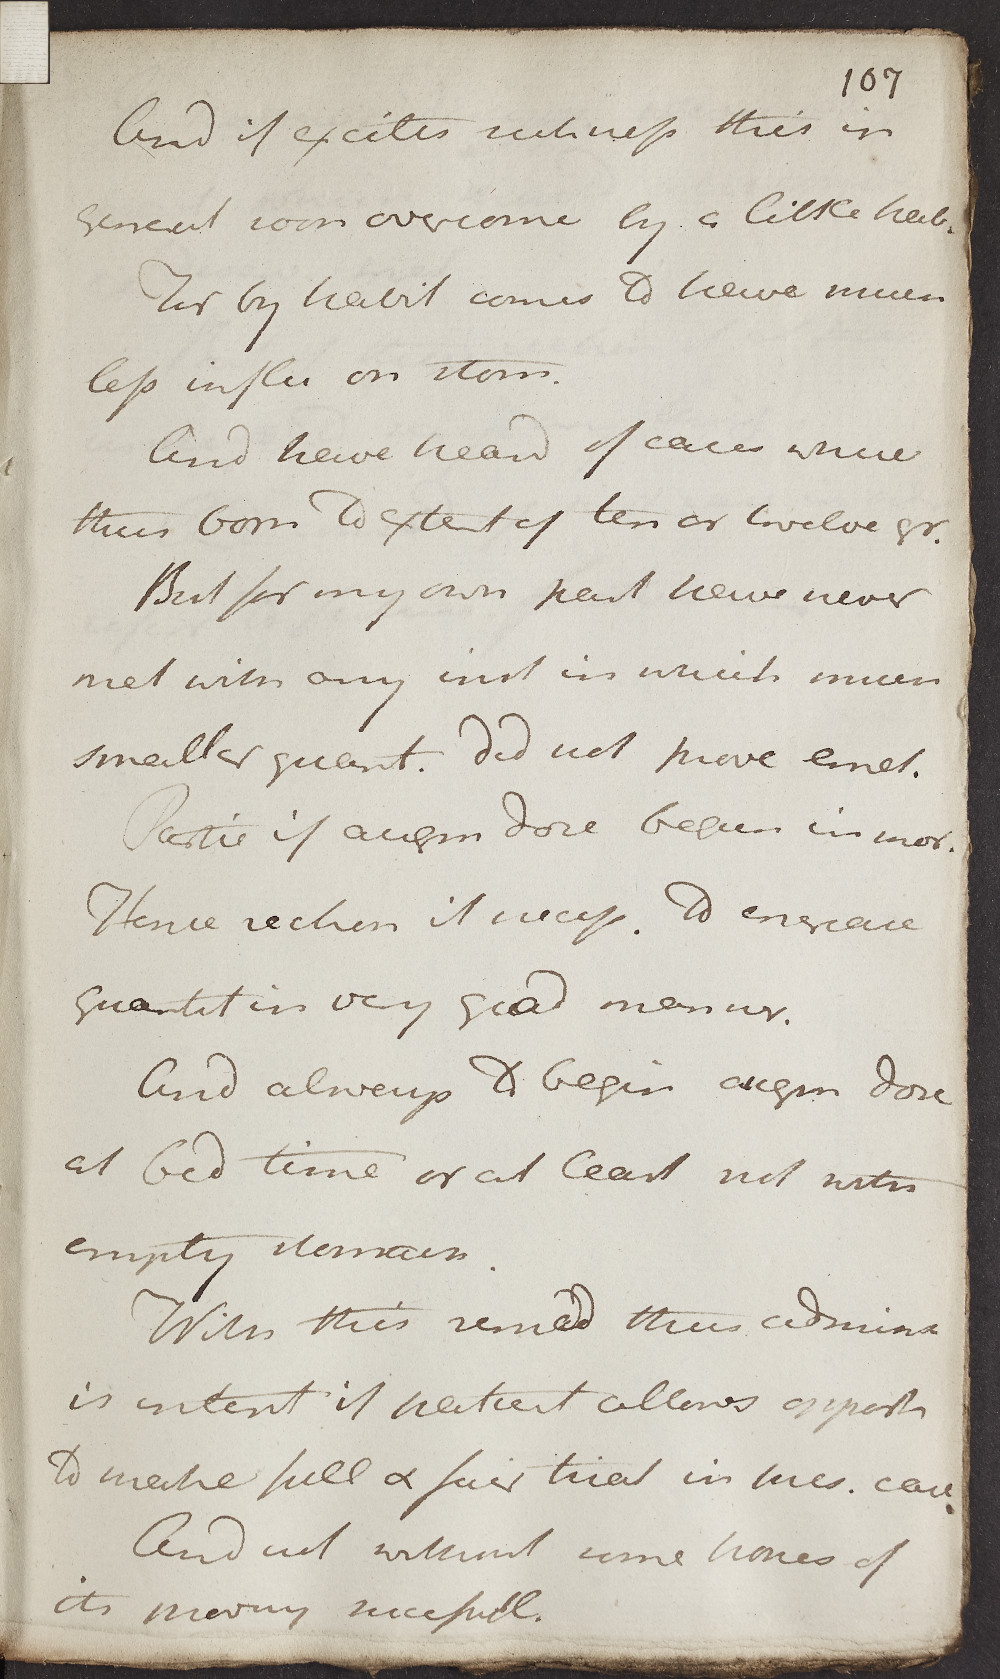 107
And if excites sickness this in
general soon overcome by a little hab.
For by habit comes to have much
less influ on stom.
And have heard of cases where
thus born to extent of ten or twelve gr.
But for my own part have never
met with any inst in which much
smaller quant. did not prove emet.
Partic if augm dose begun in mor.
Hence reckon it necess. to encrease
quantit in very grad manner.
And always to begin augm dose
at bed time or at least not with
empty stomach.
With this remed thus administ
is intent if patient allows opport
to make full & fair trial in pres. case.
And not without some hopes of
its proving successfull.